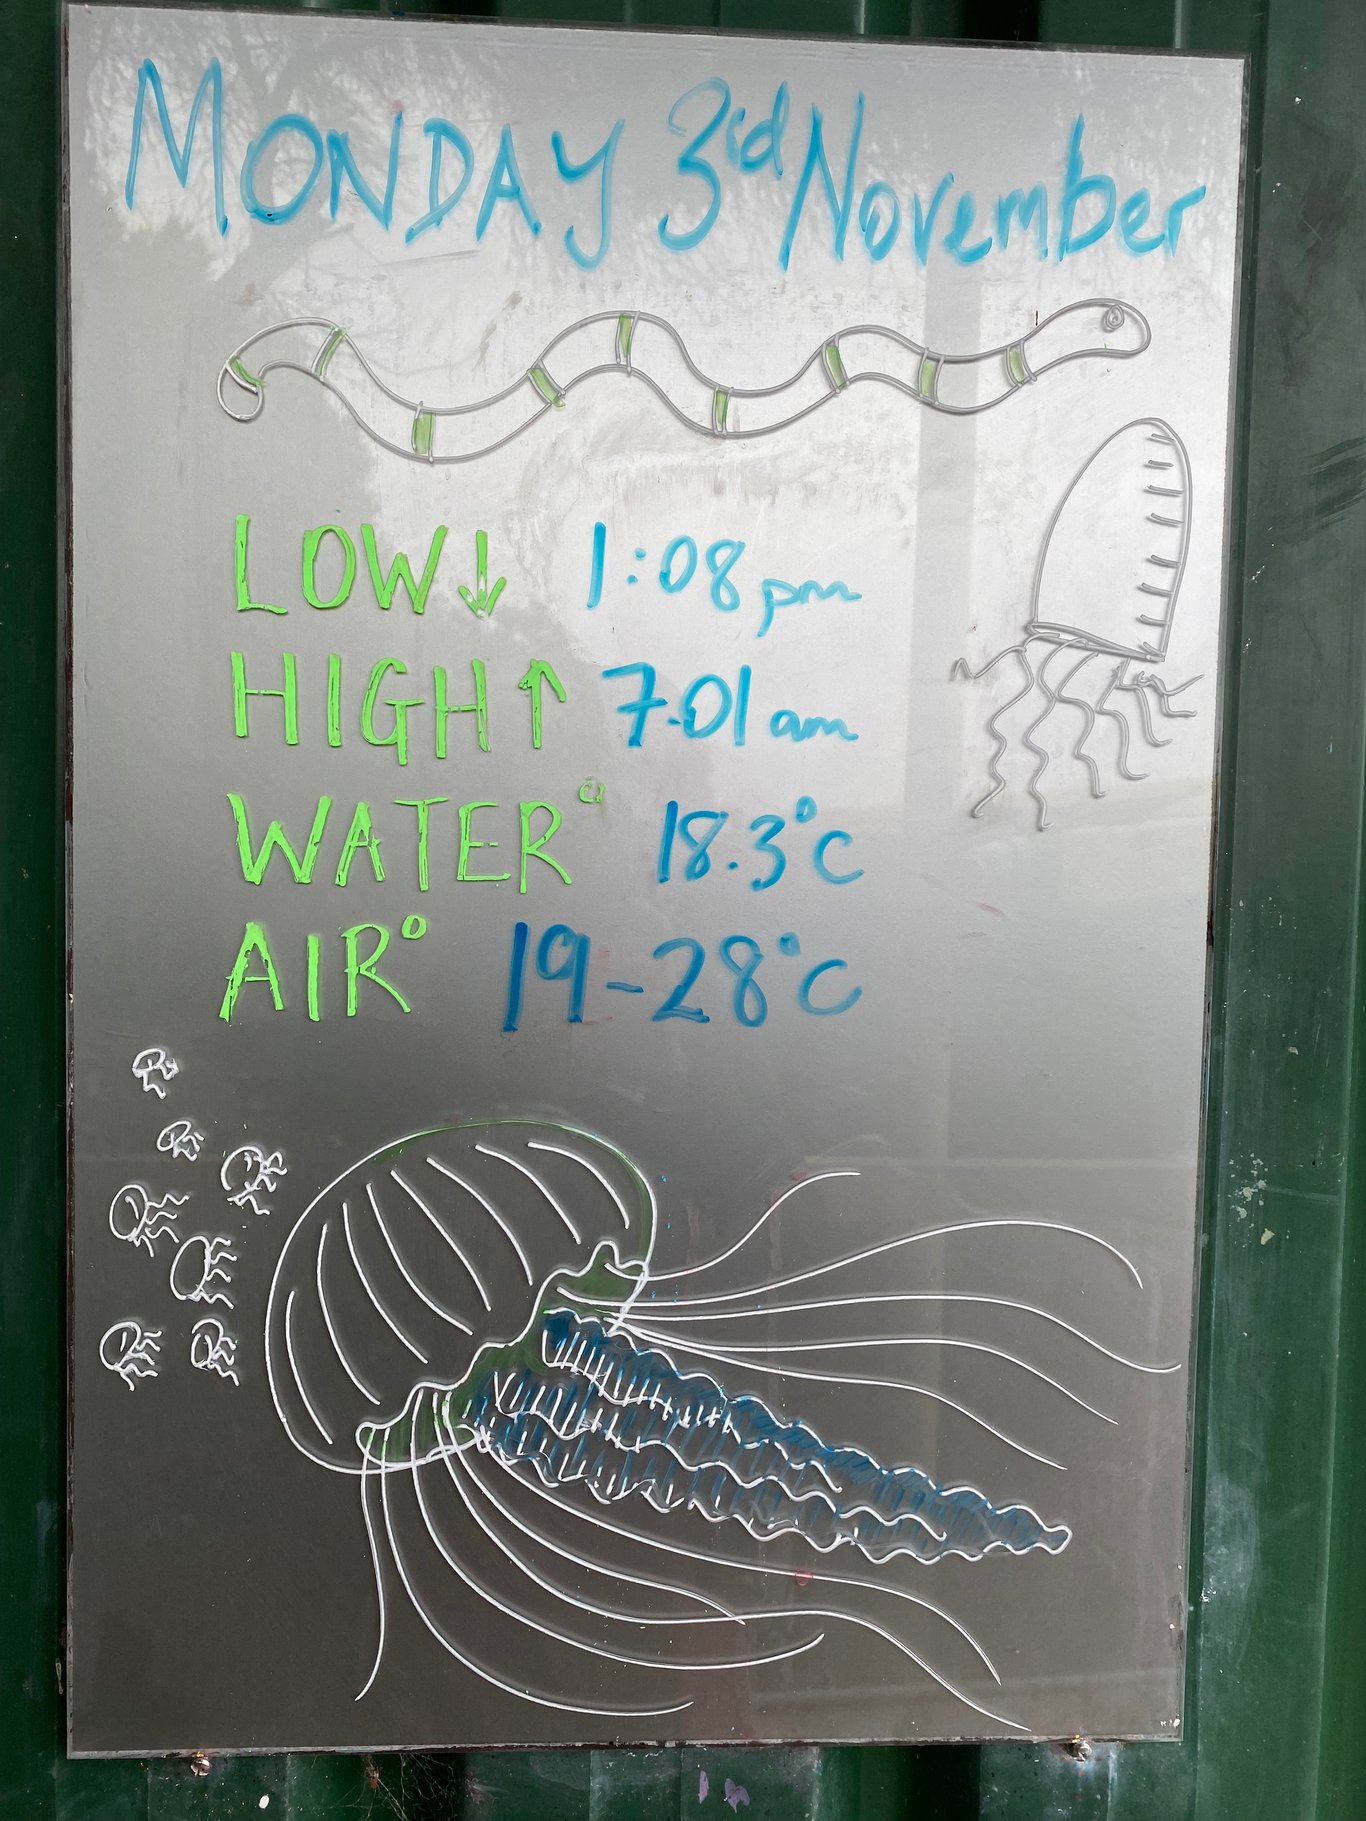 MONDAY 3rd November
LOW↓ 1:08 pm
HIGH↑ 7.01 am
WATER° 18.3°C
AIR° 19-28°C